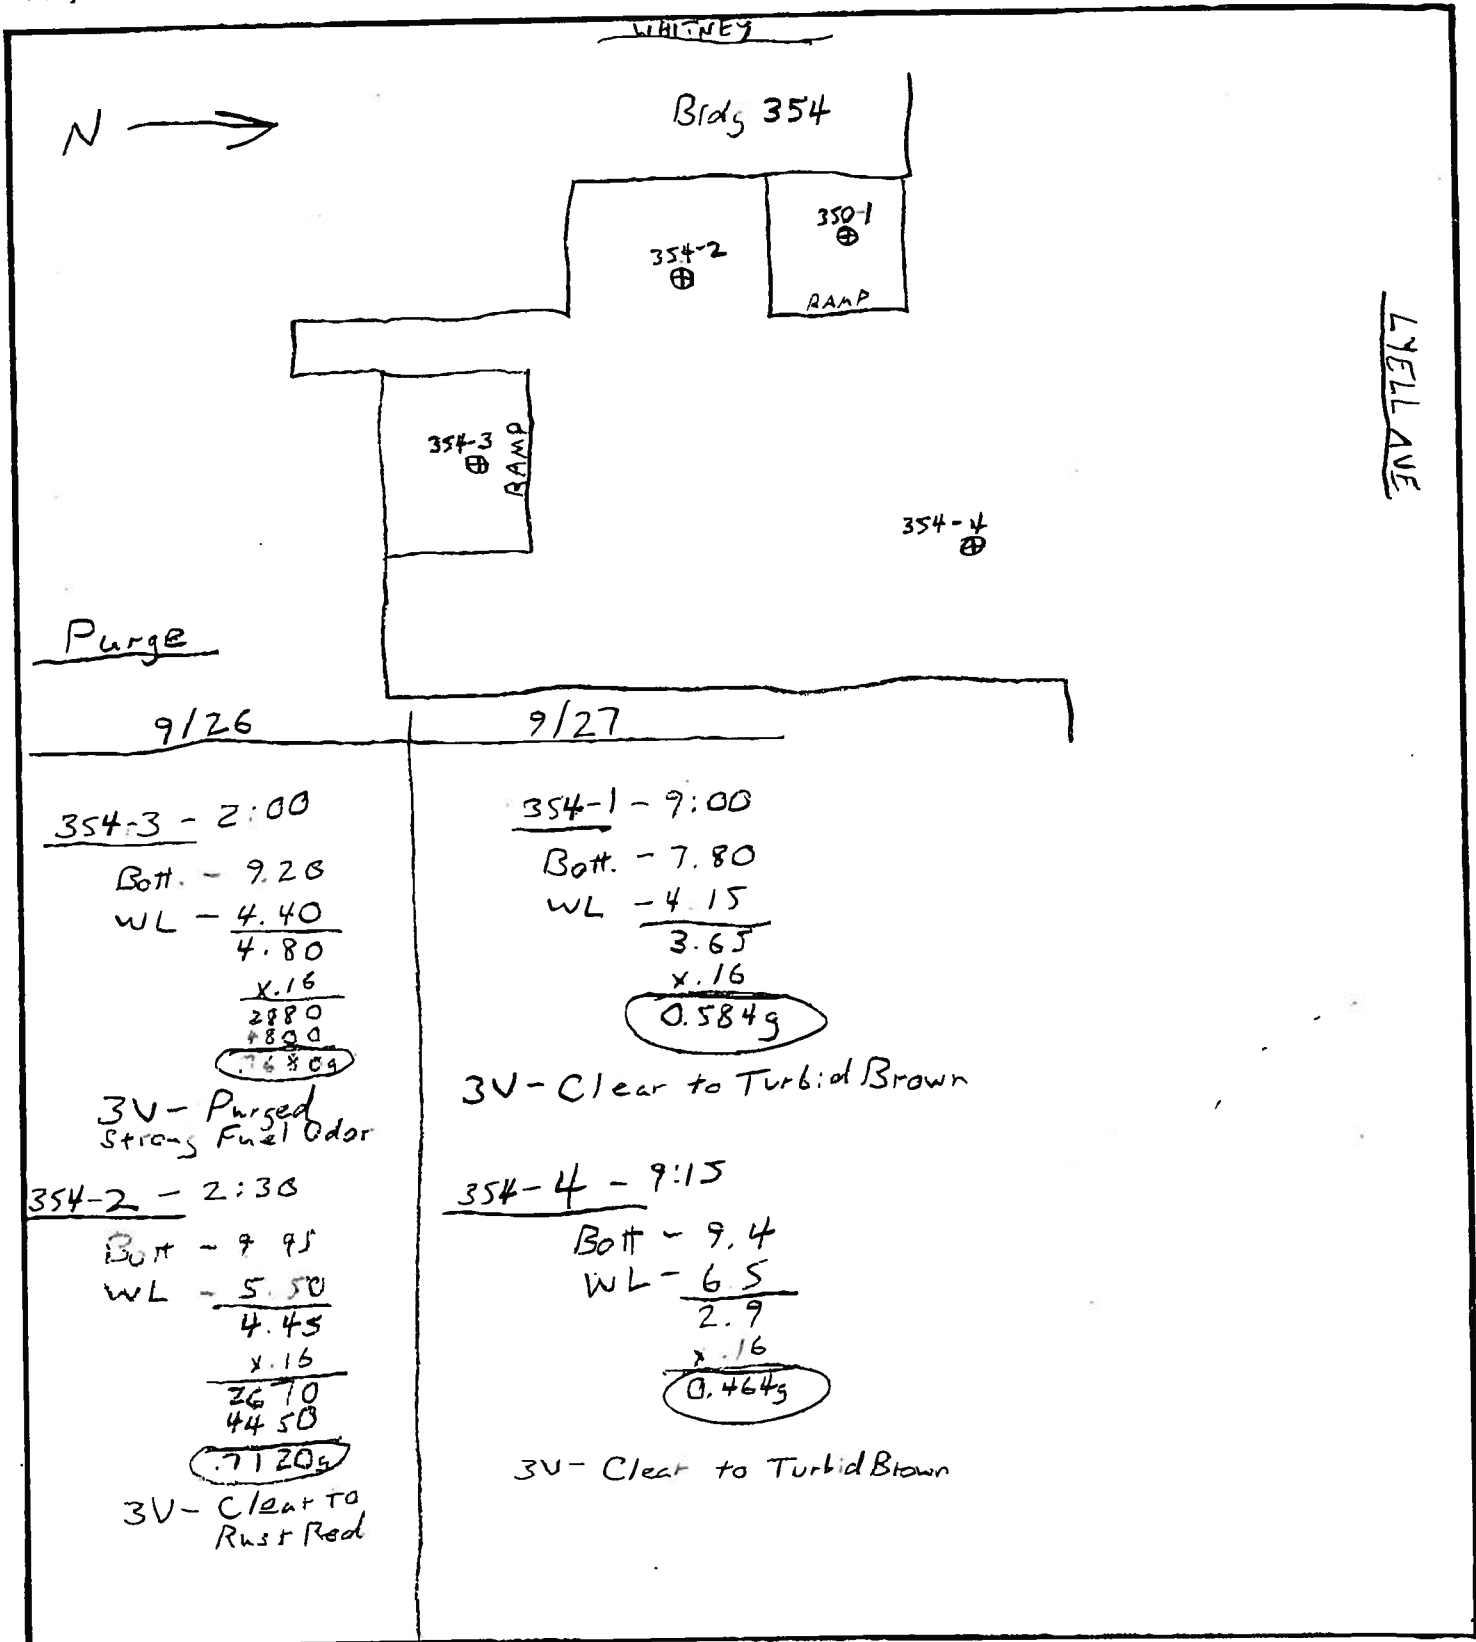 WHITNEY
N
Bldg 354
350-1
354-2
RAMP
LYELL AVE
354-3
RAMP
354-4
Purge
9/26
9/27
354-3 - 2:00
Bott. - 9.20
WL - 4.40
4.80
x.16
2880
4800
.7680g
3V- Purged
Strong Fuel Odor
354-2 - 2:30
Bott - 9 95
WL - 5.50
4.45
x.16
2670
4450
.7120g
3V- Clear TO
Rust Red
354-1 - 9:00
Bott. - 7.80
WL - 4 15
3.65
x.16
0.584g
3V- Clear to Turbid Brown
354-4 - 9:15
Bott - 9.4
WL - 6 5
2.9
x .16
0.464g
3V- Clear to Turbid Brown